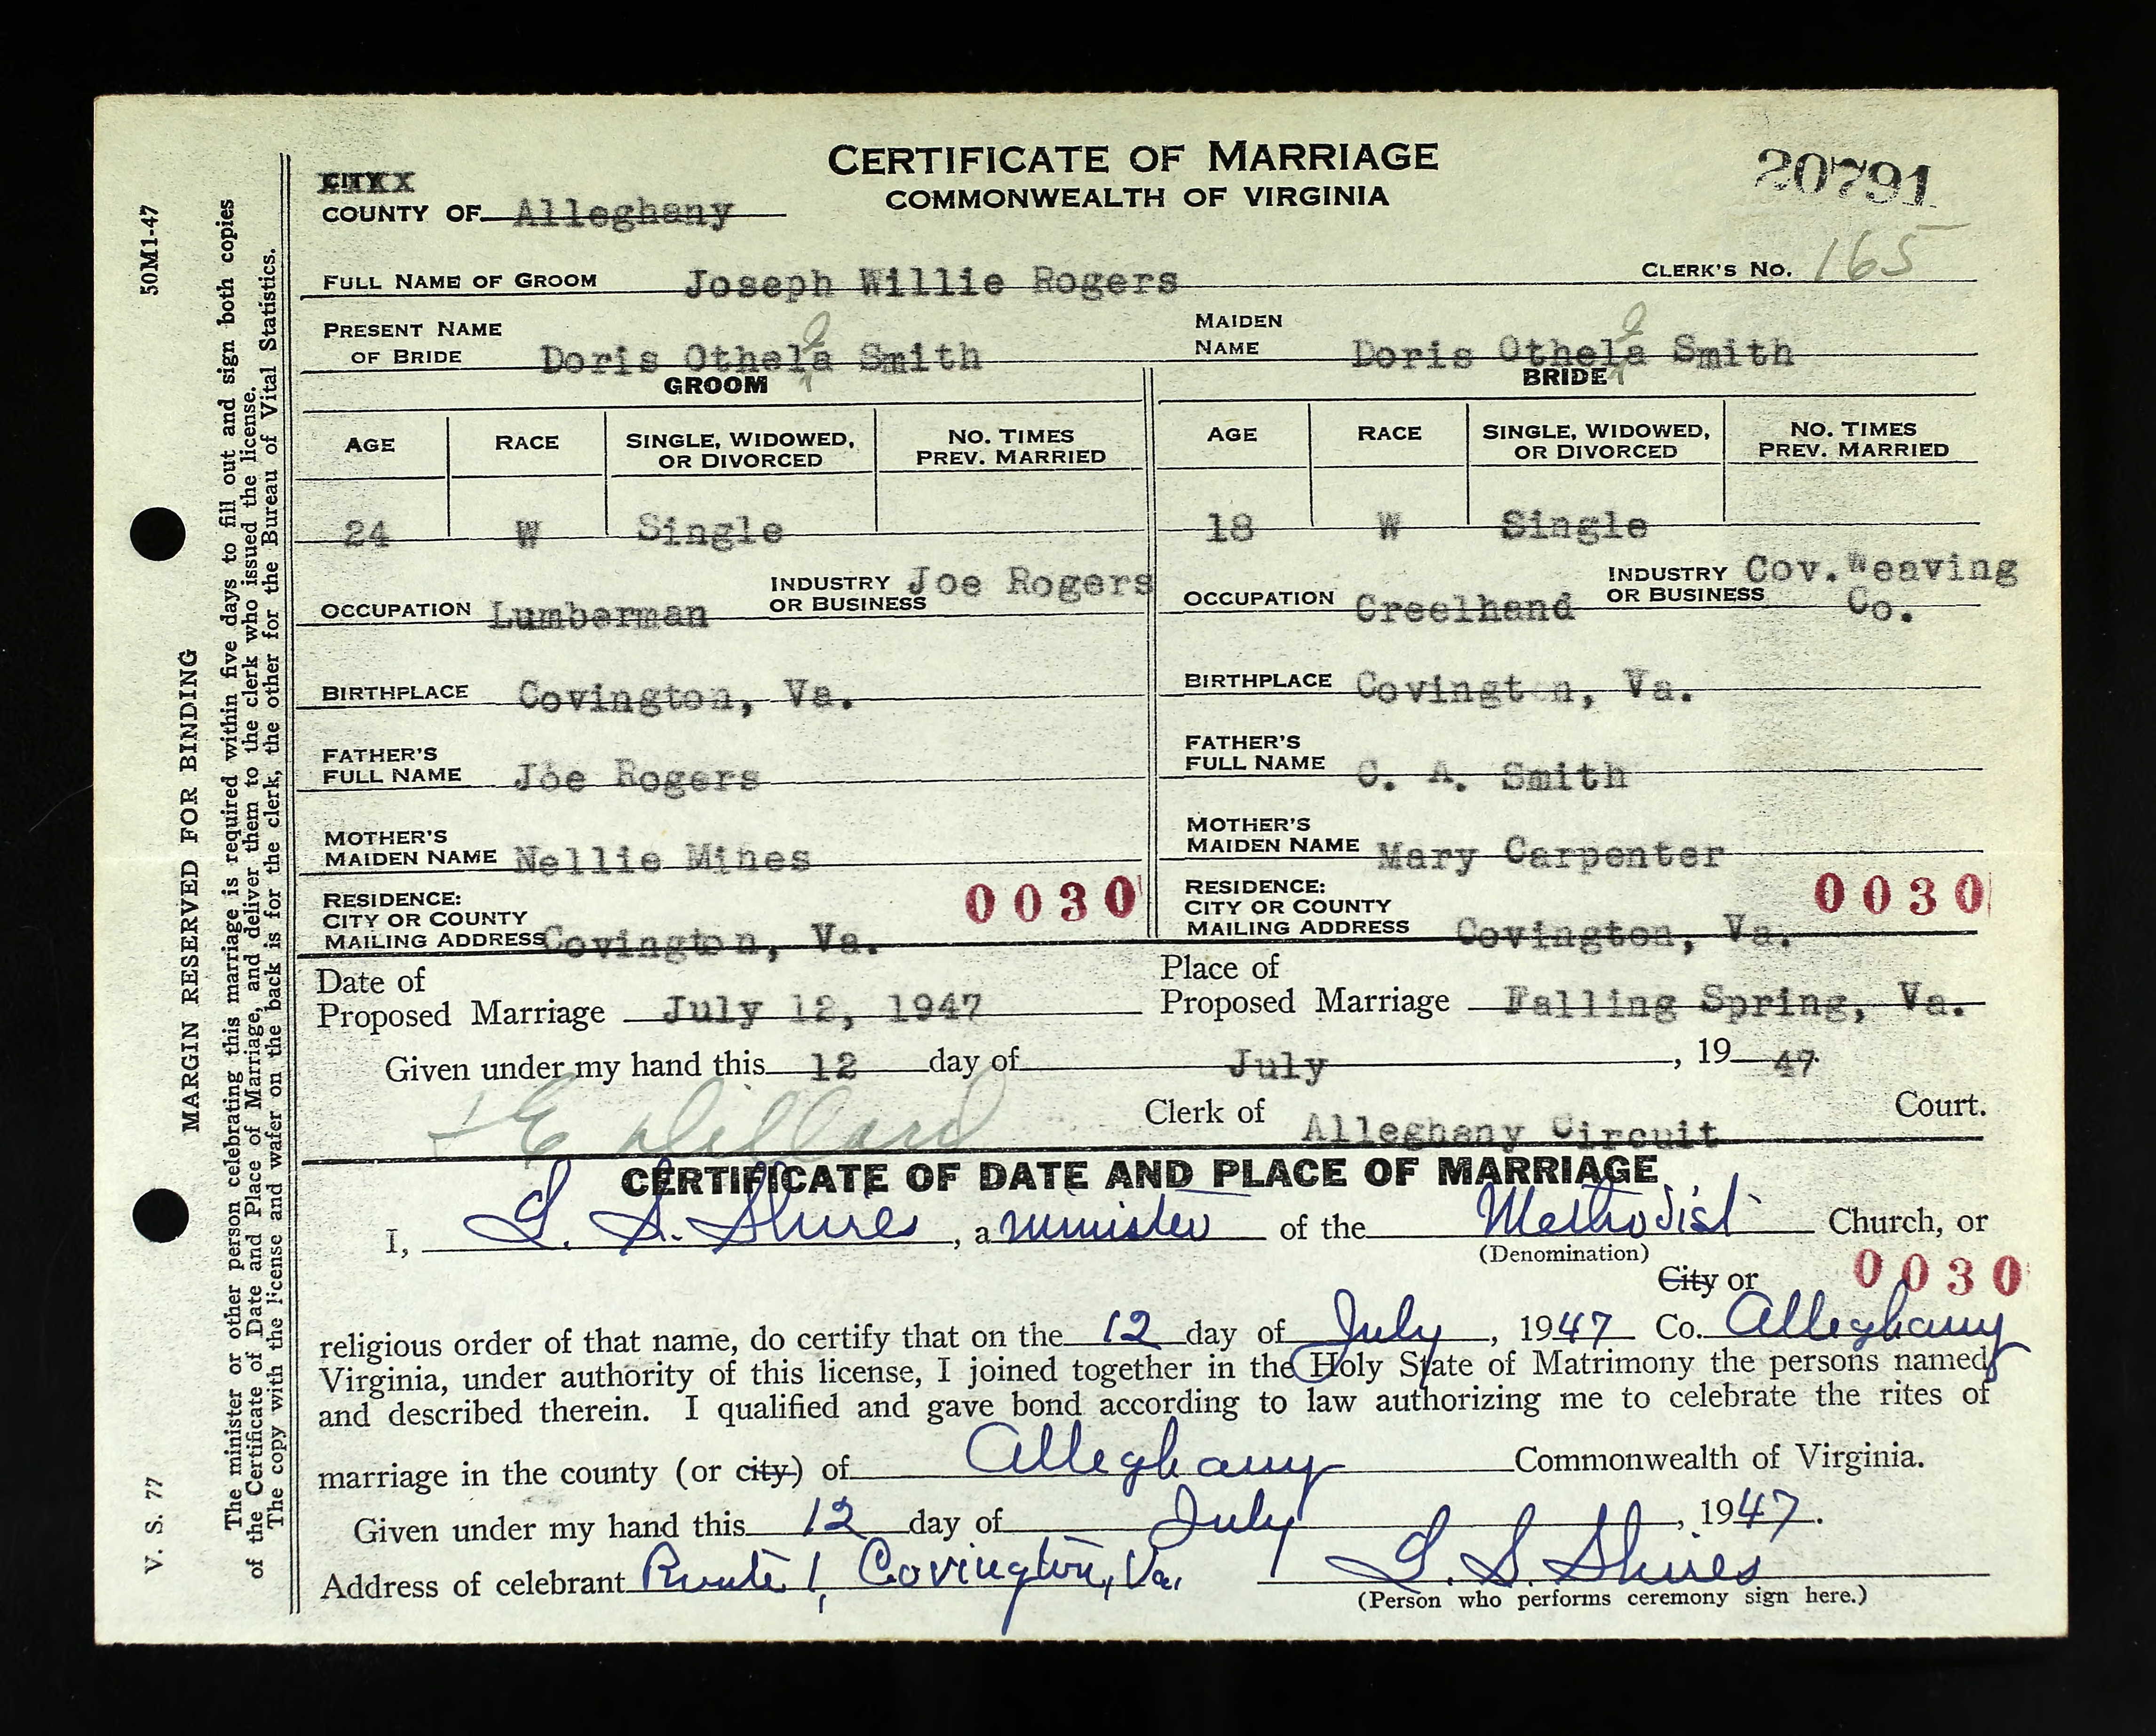 CERTIFICATE OF MARRIAGE
COMMONWEALTH OF VIRGINIA
20791
CITY XX
COUNTY OF Alleghany
FULL NAME OF GROOM Joseph Willie Rogers
CLERK'S NO. 165
PRESENT NAME OF BRIDE Doris Othela Smith
MAIDEN NAME Doris Othela Smith
GROOM
BRIDE
AGE RACE SINGLE, WIDOWED, OR DIVORCED NO. TIMES PREV. MARRIED
AGE RACE SINGLE, WIDOWED, OR DIVORCED NO. TIMES PREV. MARRIED
24 W Single
18 W Single
OCCUPATION Lumberman INDUSTRY OR BUSINESS Joe Rogers
OCCUPATION Creelhand INDUSTRY OR BUSINESS Cov. Weaving Co.
BIRTHPLACE Covington, Va.
BIRTHPLACE Covingt n, Va.
FATHER'S FULL NAME Joe Rogers
FATHER'S FULL NAME C. A. Smith
MOTHER'S MAIDEN NAME Nellie Mines
MOTHER'S MAIDEN NAME Mary Carpenter
RESIDENCE: CITY OR COUNTY MAILING ADDRESS Covington, Va. 0030
RESIDENCE: CITY OR COUNTY MAILING ADDRESS Covington, Va. 0030
Date of Proposed Marriage July 12, 1947
Place of Proposed Marriage Falling Spring, Va.
Given under my hand this 12 day of July, 1947.
Dillard Clerk of Alleghany Circuit Court.
CERTIFICATE OF DATE AND PLACE OF MARRIAGE
I, L. S. Shires, a minister of the Methodist Church, or
(Denomination)
City or 0030
religious order of that name, do certify that on the 12 day of July, 1947 Co. Alleghany
Virginia, under authority of this license, I joined together in the Holy State of Matrimony the persons named
and described therein. I qualified and gave bond according to law authorizing me to celebrate the rites of
marriage in the county (or city) of Alleghany Commonwealth of Virginia.
Given under my hand this 12 day of July, 1947.
Address of celebrant Route 1, Covington, Va. L. S. Shires
(Person who performs ceremony sign here.)
V. S. 77
50M1-47
MARGIN RESERVED FOR BINDING
The minister or other person celebrating this marriage is required within five days to fill out and sign both copies
of the Certificate of Date and Place of Marriage, and deliver them to the clerk who issued the license.
The copy with the license and wafer on the back is for the clerk, the other for the Bureau of Vital Statistics.